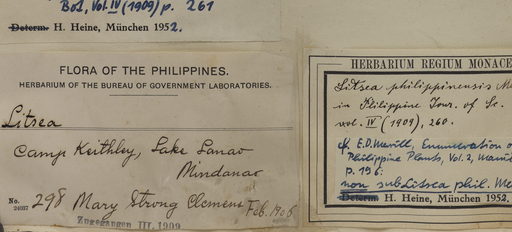 Bot., Vol. IV (1909) p. 261
Determ. H. Heine, München 1952.
FLORA OF THE PHILIPPINES.
HERBARIUM OF THE BUREAU OF GOVERNMENT LABORATORIES.
Litsea
Camp Keithley, Lake Lanao
Mindanao
No. 298 Mary Strong Clemens Feb. 1906
24037
Zugegangen III. 1909
HERBARIUM REGIUM MONACE
Litsea philippinensis Me
in Philippine Jour. of Sc.
vol. IV (1909), 260.
cf. E.D. Merrill, Enumeration o
Philippine Plants, Vol. 2, Manil
p. 196:
non sub Litsea phil. Me
Determ. H. Heine, München 1952.